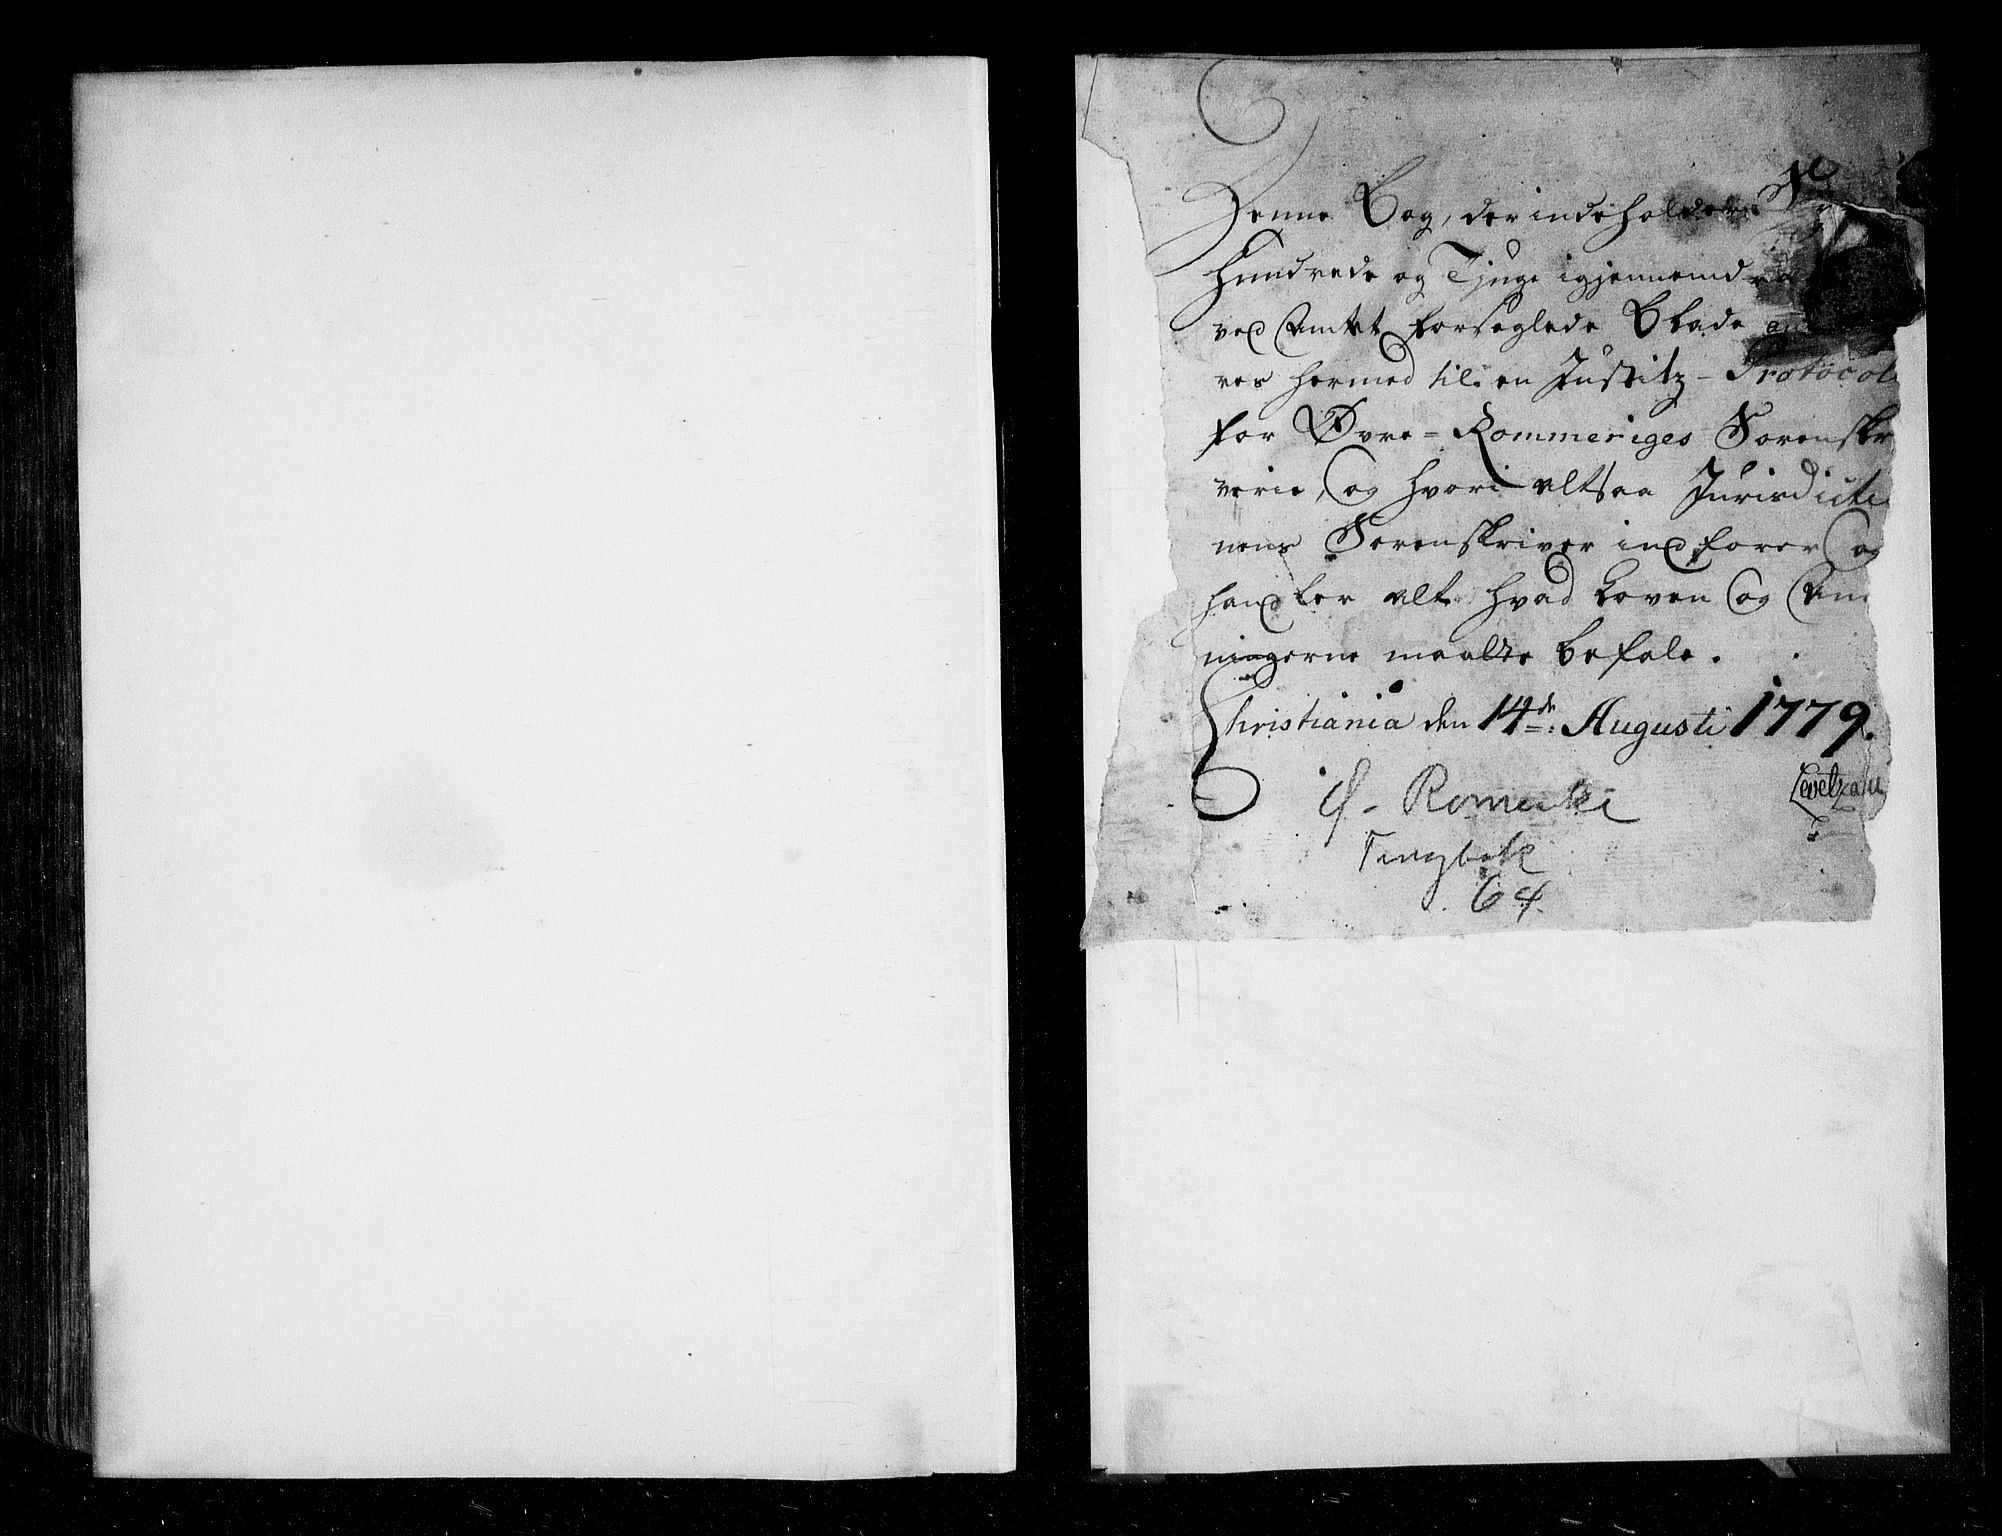 Denne Bog, der indeholder
Hundrede og Tjuge igjennemdra
ved Amtet forseglede Blade au
res hermed til en Justitz-Protocol
for Øvre=Rommeriges Sorenskr
verie, og hvori altsaa Jurisdictio
nens Sorenskriver indfører og
handler alt hvad Loven og An
ningerne maatte befale.
Christiania den 14de: Augusti 1779.
Levetzau
Ø. Romerike
Tingbok
64.